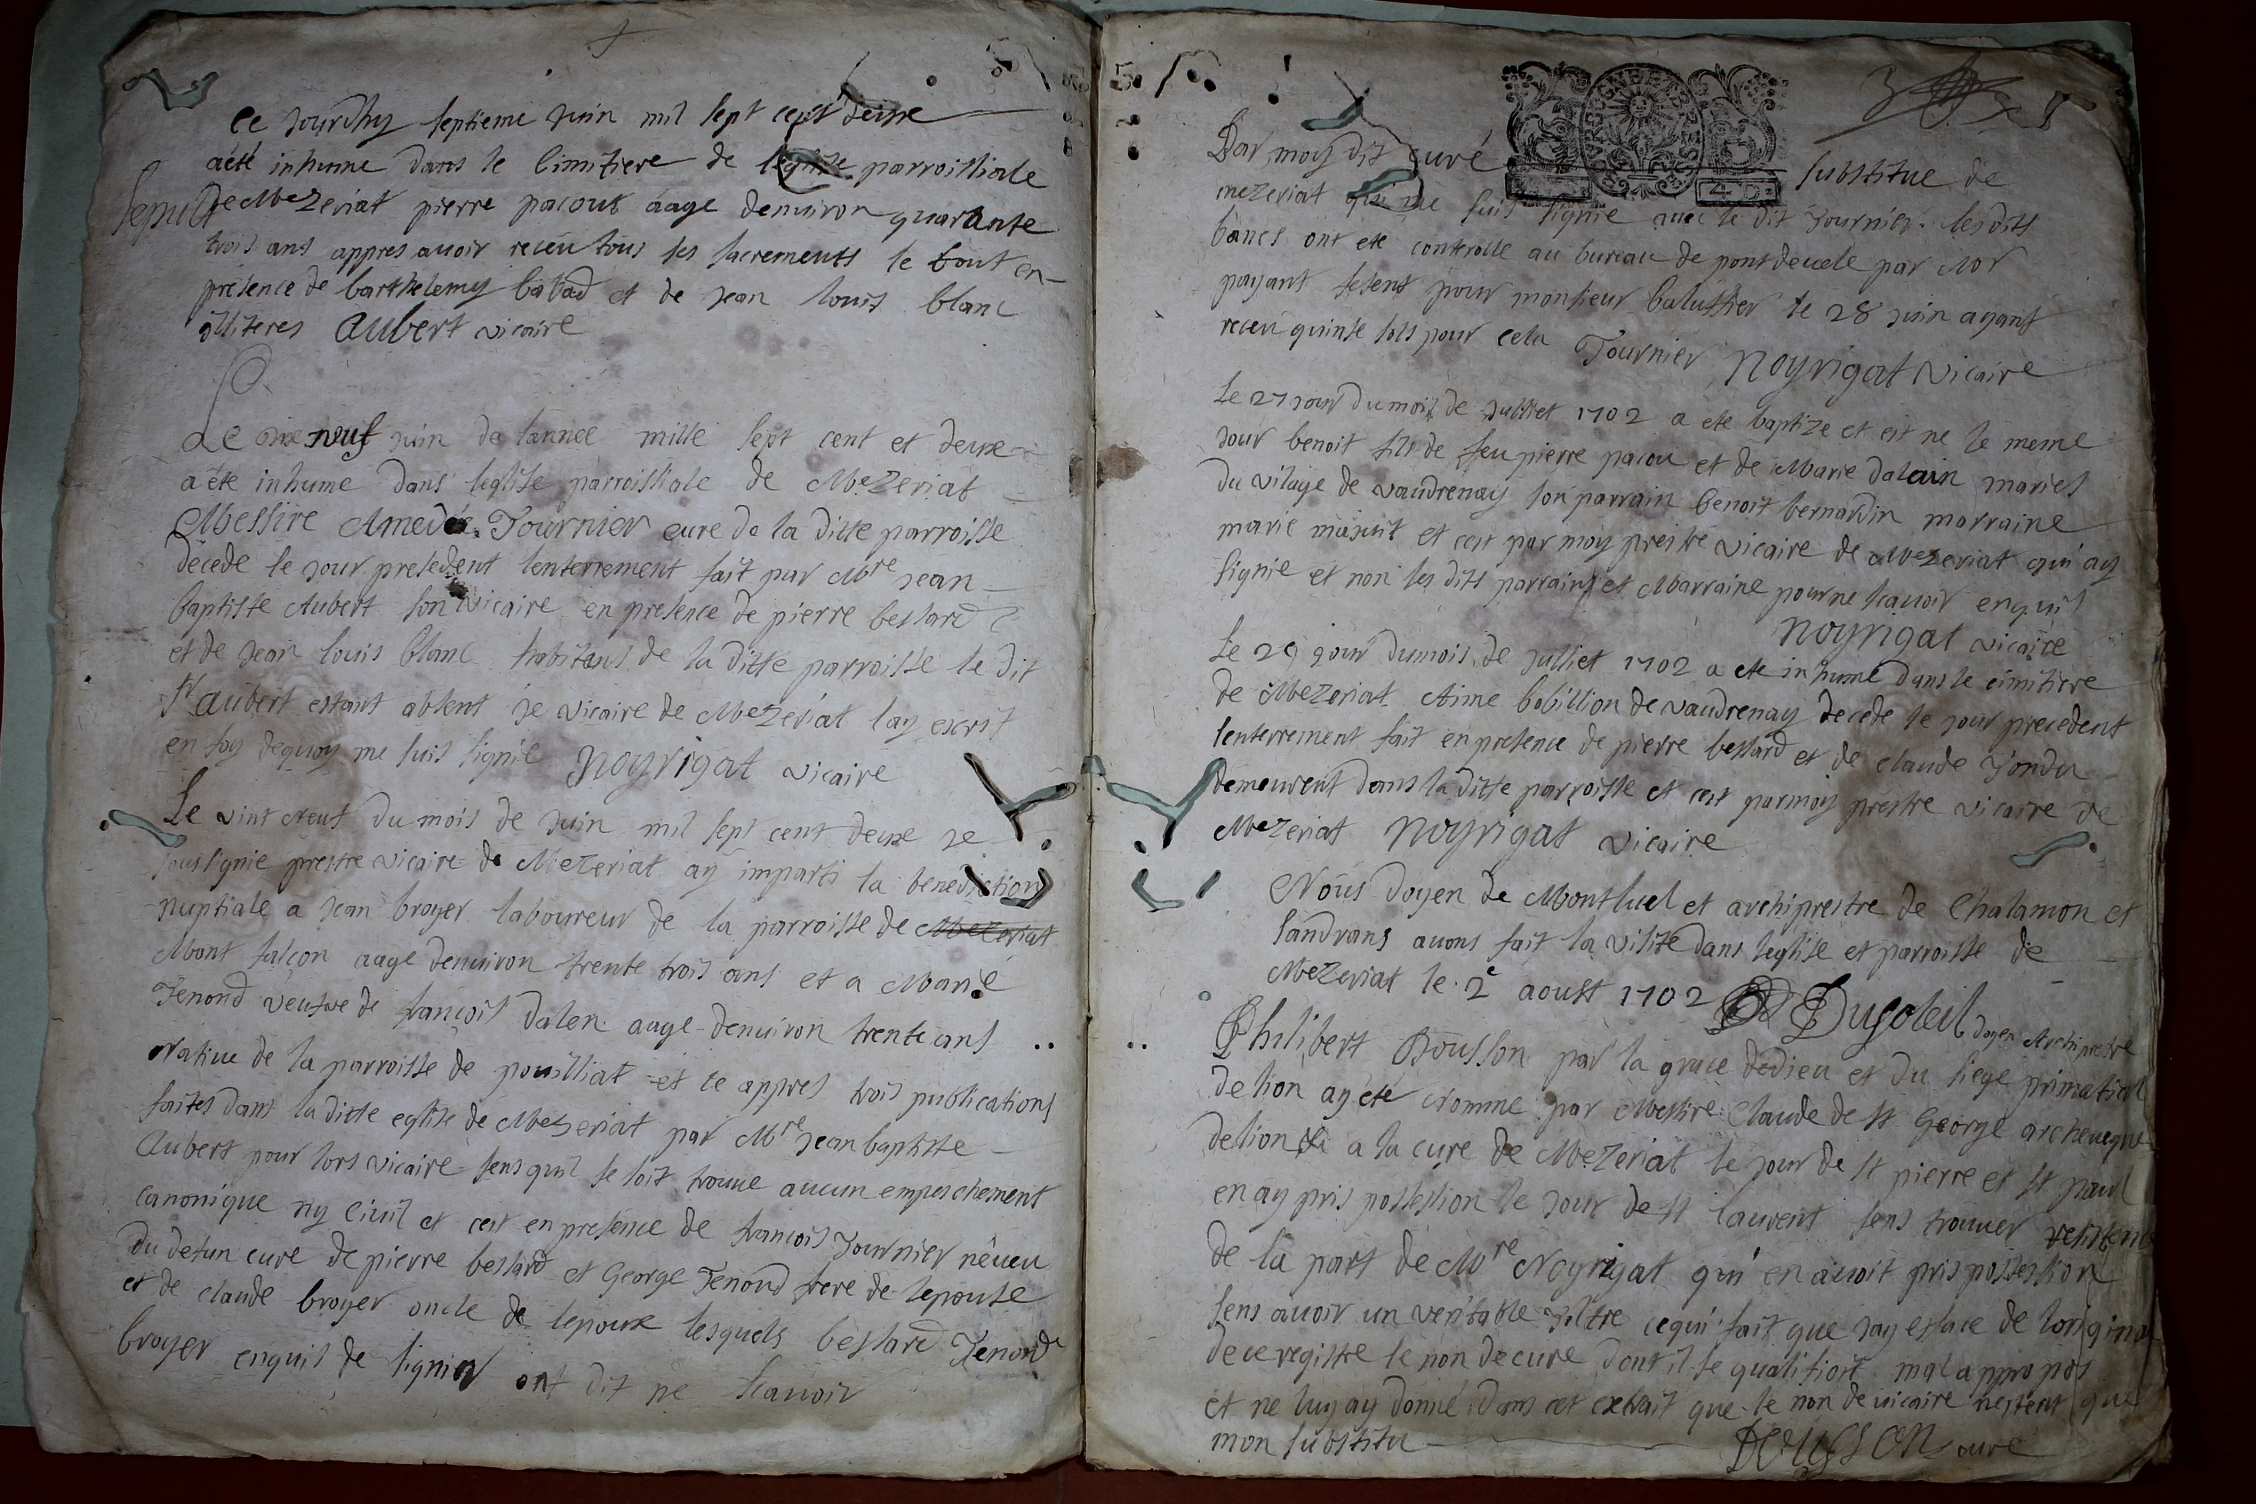 ce jourdhuy septieme juin mil sept cent deux
a été inhume dans le cimitiere de leglise parroissiale
Sepult
de Mezeriat pierre pacout aagé denuiron quarante
trois ans appres auoir receu tous ses sacrements le tout en
présence de barthelemy babad et de jean louis blanc
illiteres Aubert vicaire
Le dixneuf juin de lannee mille sept cent et deux
a éte inhume dans leglise parroissiale de Mezeriat
Messire Amedée Tournier cure de la ditte parroisse
décede le jour presedent lenterrement fait par Mre jean
baptiste Aubert son vicaire en presence de pierre bessard
et de jean louis blanc habitans de la ditte parroisse le dit
Sr aubert estant absent je vicaire de Mezeriat lay escrit
en foy dequoy me suis signie Noyrigat vicaire
Le vint neuf du mois de juin mil sept cent deux je
soussignie prestre vicaire de Mezeriat ay imparti la benediction
nuptiale a jean broyer laboureur de la parroisse de Mezeriat
Mont falcon aage denuiron trente trois ans et a Marie
Tenond veufve de francois dalen aage denuiron trente ans
Natiue de la parroisse de pouilliat et ce appres trois publications
faites dans la ditte eglise de Mezeriat par Mre jean baptiste
Aubert pour lors vicaire sens quil se soit trouue aucun empeschement
canonique ny ciuil et cest en presence de francois Tournier néueu
du defun cure de pierre bessard et George Tenond frere de lepouse
et de claude broyer oncle de lepoux lesquels bessard Tenond
broyer enquis de signier ont dit ne scauoir
3
Par moy dit curé substitue de
mezeriat qui me suis signie auec le dit Tournier les dits
bancs ont ete controlle au bureau de pontdeuele par Mor
payant sesens pour monsieur baluffier le 28 juin ayant
receu quinse sols pour cela Tournier Noyrigat vicaire
BOURG EN BRESSE
4 D
Le 27 jour du mois de julliet 1702 a ete baptize et est ne le meme
jour benoit fils de feu pierre pacou et de Marie dalain maries
du vilage de vaudrenay son parrain benoit bernardin marraine
marie et cest par moy prestre vicaire de Mezeriat qui ay
signie et non les dits parrains et Marraine pour ne scauoir enquis
Noyrigat vicaire
Le 29 jour dumois de julliet 1702 a ete inhume dans le cimitiere
de Mezeriat Aime bobillion de vaudrenay decede le jour precedent
lenterrement fait en presence de pierre bessard et de claude
demeurent dans la ditte parroisse et cest par moy prestre vicaire de
Mezeriat Noyrigat vicaire
Nous doyen de Montluel et archiprestre de Chalamon et
Sandrans auons fait la visite dans leglise et parroisse de
Mezeriat le 2e aoust 1702 Dusoleil doyen Archiprestre
Philibert Bousson par la grace dedieu et du siege primatial
delion ay été nomme par Messire Claude de St George archeueque
delion a la cure de Mezeriat le jour de St pierre et St paul
en ay pris possession le jour de St laurent sens trouuer resistens
de la part de Mre Noyrigat qui en auoit pris possession
sens auoir un veritable tiltre cequi fait que jay esface de loriginal
deceregistre le non decure dont il se qualifioit mal appropos
et ne luy ay donné dans cet extrait que le non de vicaire nestent que
mon substitu BOUSSON curé